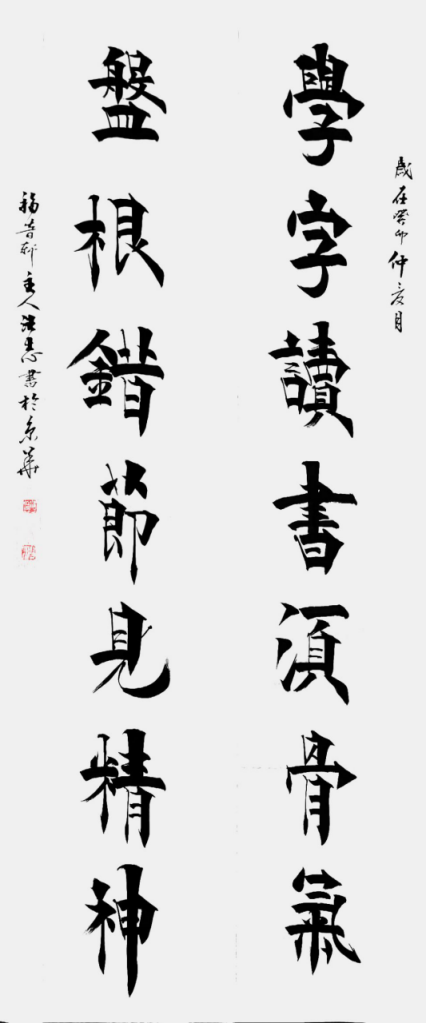 歲在癸卯仲夏月
學字讀書湏骨氣
盤根錯節見精神
福音軒主人志書於京華